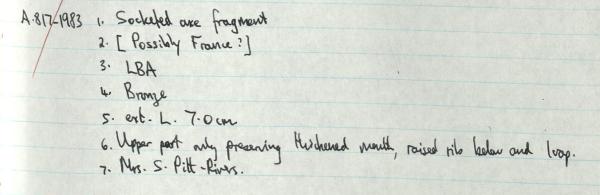 A.817-1983 1. Socketed axe fragment
2. [Possibly France?]
3. LBA
4. Bronze
5. ext. L. 7.0cm
6. Upper part only preserving thickened mouth, raised rib below and loop.
7. Mrs. S. Pitt-Rivers.